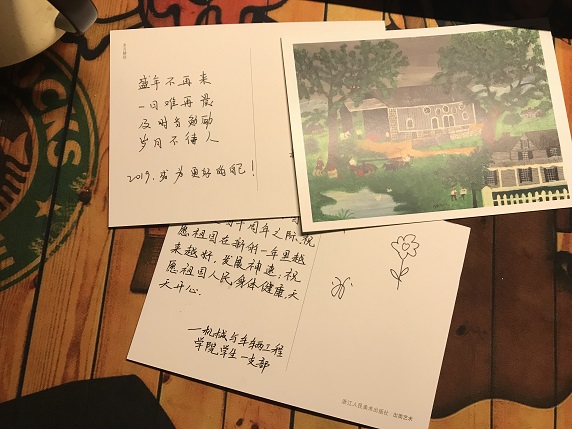 盛年不再来
一日难再晨
及时当勉励
岁月不待人
2019.成为更好的自己!
周年之际,祝
愿祖国在新的一年里越
来越好,发展神速;祝
愿祖国人民身体健康,天
天开心.
—机械与车辆工程
学院学生一支部
浙江人民美术出版社·出案艺术
CKS